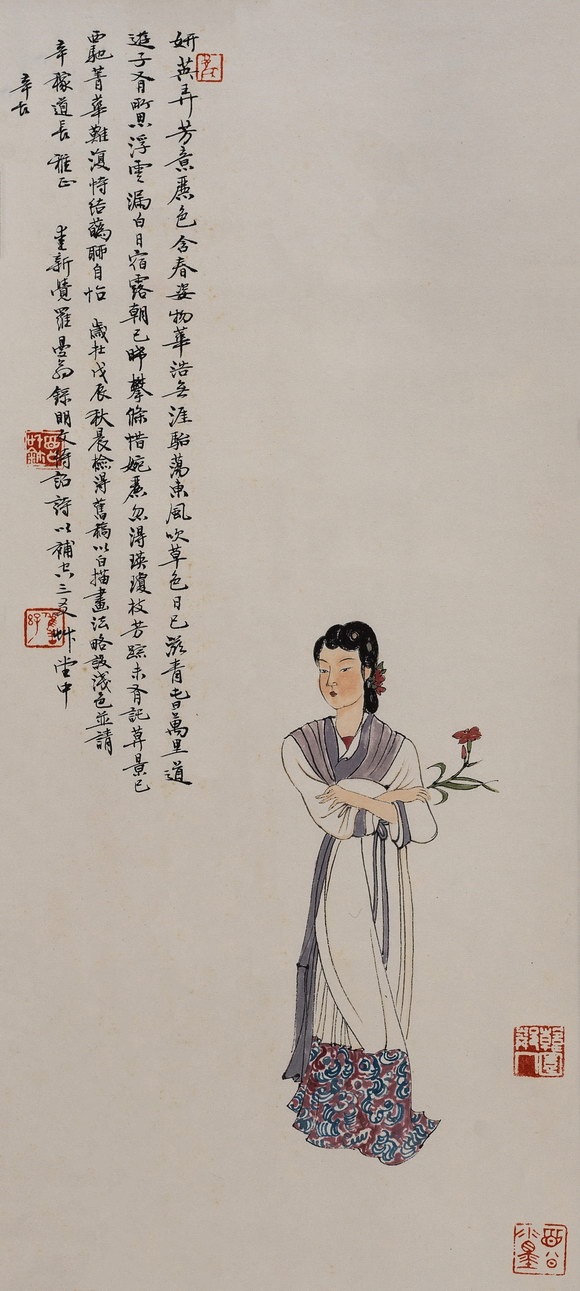 妍英弄芳意麗色含春姿物華浩無涯駘蕩東風吹草色日已滋青青萬里道
遊子有所思浮雲漏白日宿露朝已晞攀條惜婉麗忽得瑛瓊枝芳蹤未有託暮景已
西馳菁華難復恃結藹聊自怡 歲杜戊辰秋晨檢得舊稿以白描畫法略設淺色並請
辛稼道長雅正 新覺羅 錄明文待詔詩以補空三 草堂中
辛古